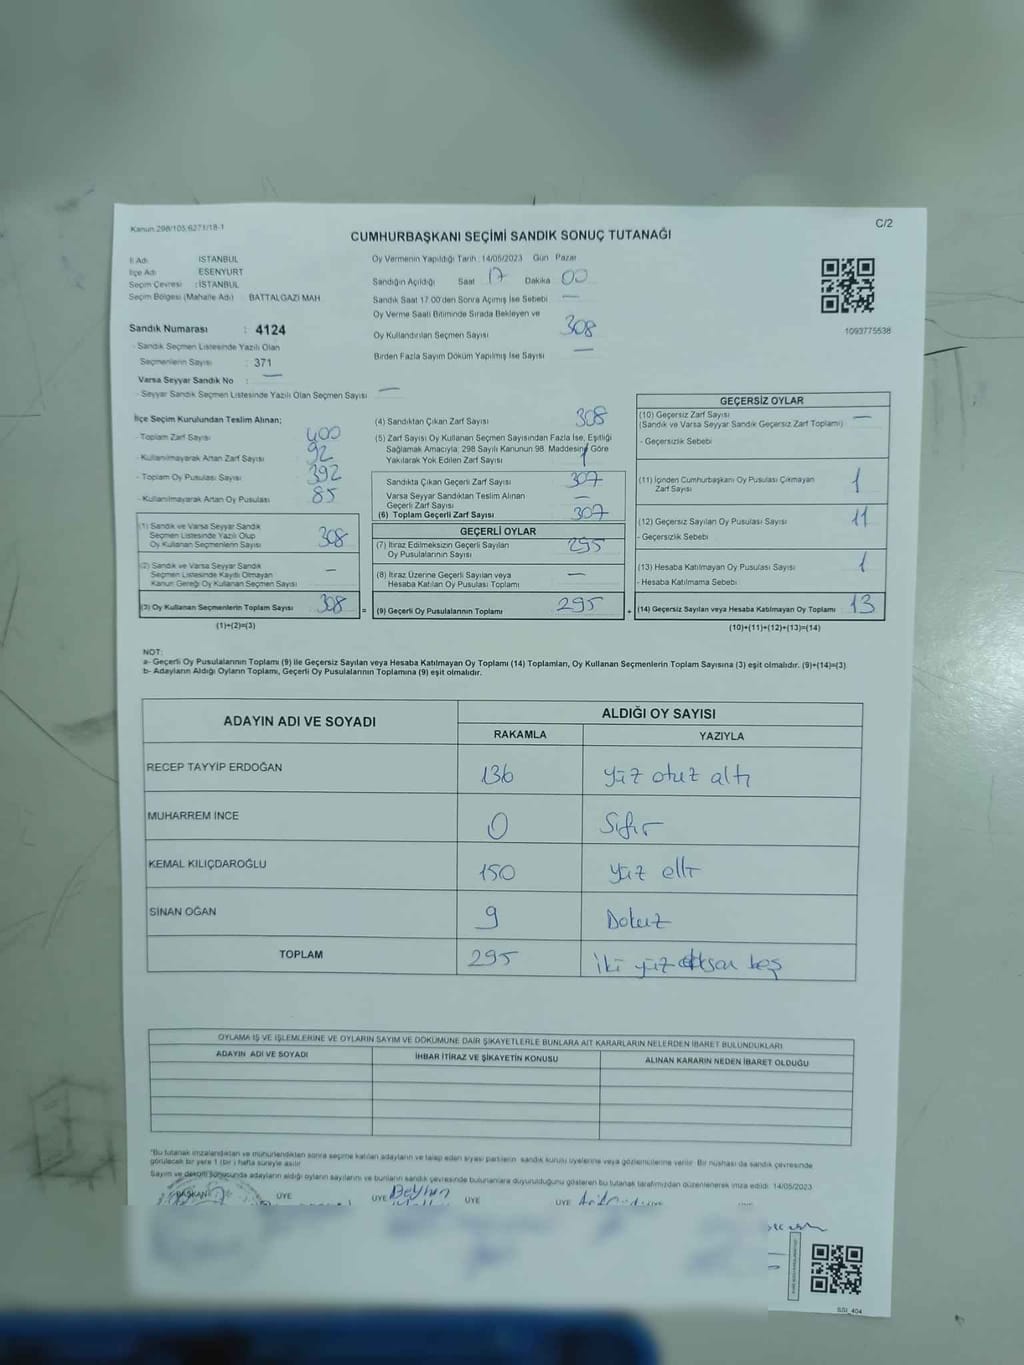 Kanun 298/105,6271/18-1
C/2
CUMHURBAŞKANI SEÇİMİ SANDIK SONUÇ TUTANAĞI
İl Adı : İSTANBUL
İlçe Adı : ESENYURT
Seçim Çevresi : İSTANBUL
Seçim Bölgesi (Mahalle Adı) BATTALGAZİ MAH
Sandık Numarası : 4124
- Sandık Seçmen Listesinde Yazılı Olan
Seçmenlerin Sayısı : 371
Varsa Seyyar Sandık No : —
- Seyyar Sandık Seçmen Listesinde Yazılı Olan Seçmen Sayısı —
Oy Vermenin Yapıldığı Tarih : 14/05/2023 Gün Pazar
Sandığın Açıldığı Saat 17 Dakika 00
Sandık Saat 17.00'den Sonra Açılmış İse Sebebi —
Oy Verme Saati Bitiminde Sırada Bekleyen ve
Oy Kullandırılan Seçmen Sayısı 308
Birden Fazla Sayım Döküm Yapılmış İse Sayısı —
1093775538
İlçe Seçim Kurulundan Teslim Alınan;
- Toplam Zarf Sayısı 400
- Kullanılmayarak Artan Zarf Sayısı 92
- Toplam Oy Pusulası Sayısı 392
- Kullanılmayarak Artan Oy Pusulası 85
(1) Sandık ve Varsa Seyyar Sandık
Seçmen Listesinde Yazılı Olup
Oy Kullanan Seçmenlerin Sayısı 308
(2) Sandık ve Varsa Seyyar Sandık
Seçmen Listesinde Kayıtlı Olmayan
Kanun Gereği Oy Kullanan Seçmen Sayısı —
(3) Oy Kullanan Seçmenlerin Toplam Sayısı 308 =
(1)+(2)=(3)
(4) Sandıktan Çıkan Zarf Sayısı 308
(5) Zarf Sayısı Oy Kullanan Seçmen Sayısından Fazla İse, Eşitliği
Sağlamak Amacıyla; 298 Sayılı Kanunun 98. Maddesine Göre
Yakılarak Yok Edilen Zarf Sayısı 1
Sandıkta Çıkan Geçerli Zarf Sayısı 307
Varsa Seyyar Sandıktan Teslim Alınan
Geçerli Zarf Sayısı —
(6) Toplam Geçerli Zarf Sayısı 307
GEÇERLİ OYLAR
(7) İtiraz Edilmeksizin Geçerli Sayılan
Oy Pusulalarının Sayısı 295
(8) İtiraz Üzerine Geçerli Sayılan veya
Hesaba Katılan Oy Pusulası Toplamı —
(9) Geçerli Oy Pusulalarının Toplamı 295 +
GEÇERSİZ OYLAR
(10) Geçersiz Zarf Sayısı —
(Sandık ve Varsa Seyyar Sandık Geçersiz Zarf Toplamı)
- Geçersizlik Sebebi
(11) İçinden Cumhurbaşkanı Oy Pusulası Çıkmayan
Zarf Sayısı 1
(12) Geçersiz Sayılan Oy Pusulası Sayısı 11
- Geçersizlik Sebebi
(13) Hesaba Katılmayan Oy Pusulası Sayısı 1
- Hesaba Katılmama Sebebi
(14) Geçersiz Sayılan veya Hesaba Katılmayan Oy Toplamı 13
(10)+(11)+(12)+(13)=(14)
NOT:
a- Geçerli Oy Pusulalarının Toplamı (9) ile Geçersiz Sayılan veya Hesaba Katılmayan Oy Toplamı (14) Toplamları, Oy Kullanan Seçmenlerin Toplam Sayısına (3) eşit olmalıdır. (9)+(14)=(3)
b- Adayların Aldığı Oyların Toplamı, Geçerli Oy Pusulalarının Toplamına (9) eşit olmalıdır.
ADAYIN ADI VE SOYADI
ALDIĞI OY SAYISI
RAKAMLA YAZIYLA
RECEP TAYYİP ERDOĞAN 136 Yüz otuz altı
MUHARREM İNCE 0 Sıfır
KEMAL KILIÇDAROĞLU 150 Yüz elli
SİNAN OĞAN 9 Dokuz
TOPLAM 295 İki yüz doksan beş
OYLAMA İŞ VE İŞLEMLERİNE VE OYLARIN SAYIM VE DÖKÜMÜNE DAİR ŞİKAYETLERLE BUNLARA AİT KARARLARIN NELERDEN İBARET BULUNDUKLARI
ADAYIN ADI VE SOYADI İHBAR İTİRAZ VE ŞİKAYETİN KONUSU ALINAN KARARIN NEDEN İBARET OLDUĞU
*Bu tutanak imzalandıktan ve mühürlendikten sonra seçime katılan adayların ve talep eden siyasi partilerin sandık kurulu üyelerine veya gözlemcilerine verilir. Bir nüshası da sandık çevresinde
görülecek bir yere 1 (bir) hafta süreyle asılır.
Sayım ve döküm sonucunda adayların aldığı oyların sayılarını ve bunların sandık çevresinde bulunanlara duyurulduğunu gösteren bu tutanak tarafımızdan düzenlenerek imza edildi. 14/05/2023
BAŞKAN ÜYE ÜYE Beyhan ÜYE ÜYE